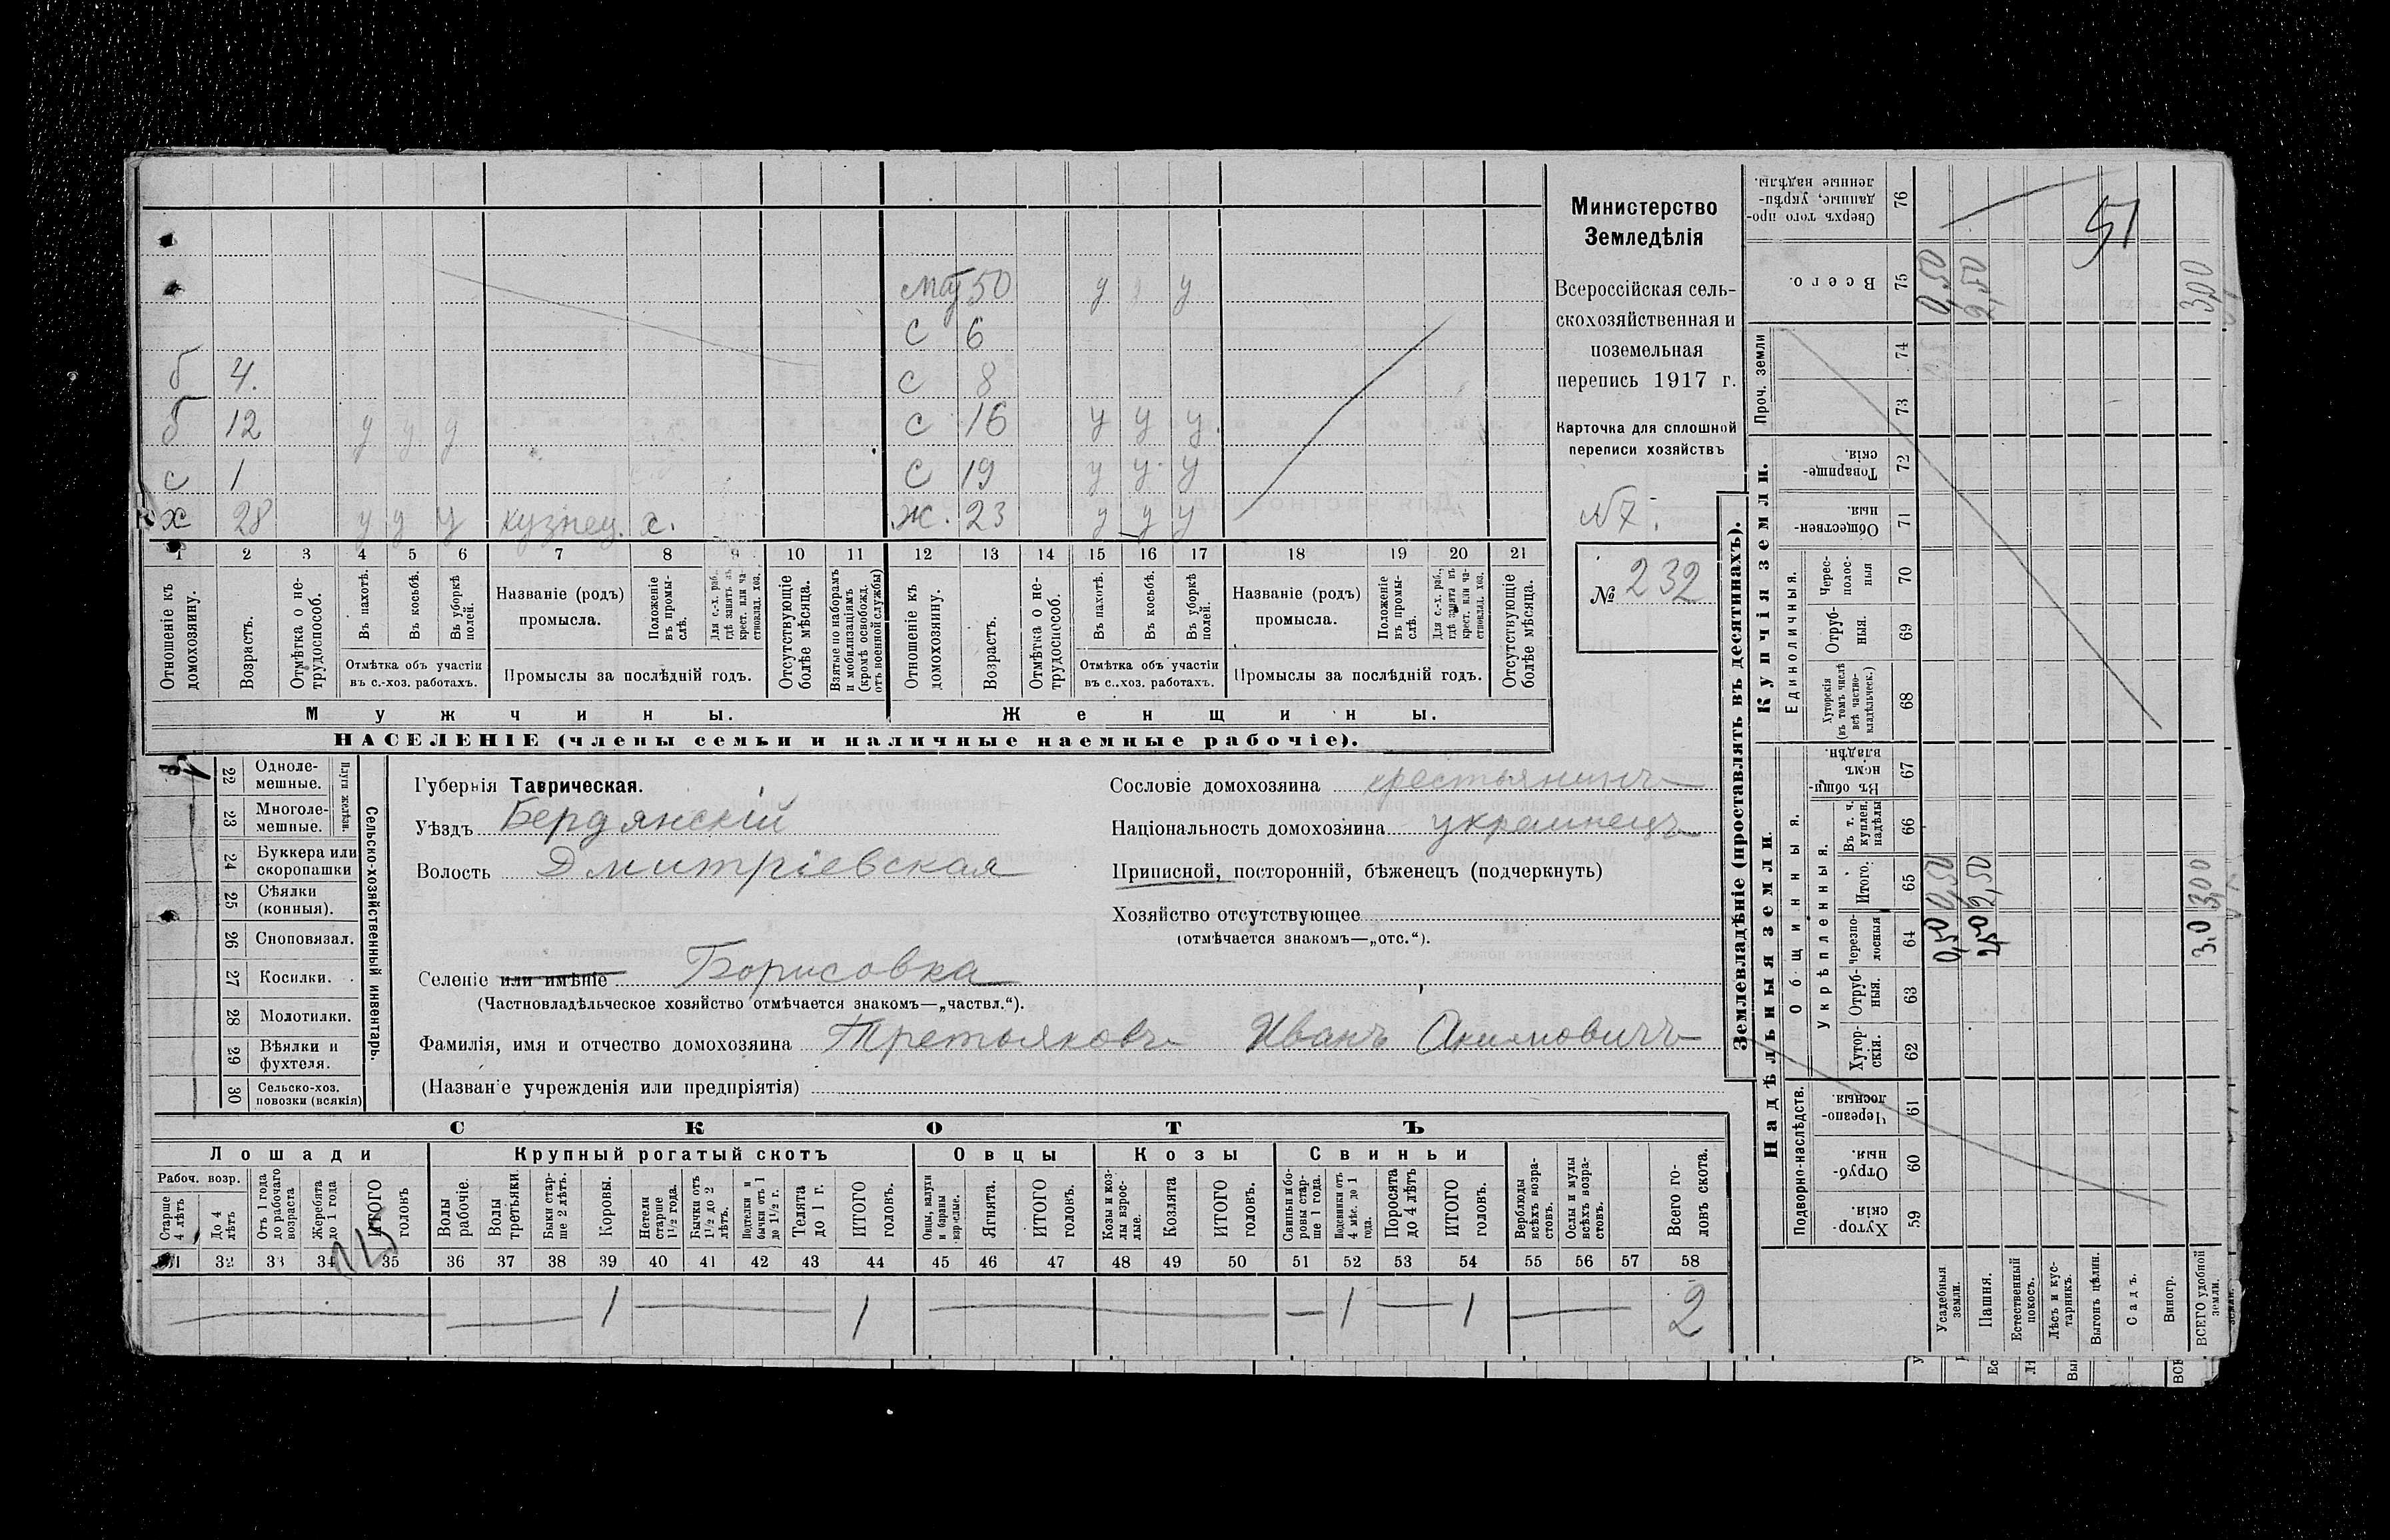 мат 50 у у
с 6
б 4. с 8
б 12 у у у с 16 у у у
с 1 с 19 у у у
х 28 у у у кузнец. х. ж. 23 у у у
1 2 3 4 5 6 7 8 9 10 11 12 13 14 15 16 17 18 19 20 21
Отношеніе къ домохозяину.
Возрастъ.
Отмѣтка о не-
трудоспособ.
Въ пахотѣ.
Въ косьбѣ.
Въ уборкѣ
полей.
Отмѣтка объ участіи
въ с.-хоз. работахъ.
Названіе (родъ)
промысла.
Положеніе
въ промы-
слѣ.
Для с.-х. раб.,
гдѣ занятъ въ
крест. или ча-
стновлад. хоз.
Промыслы за послѣдній годъ.
Отсутствующіе
болѣе мѣсяца.
Взятые по наборамъ
и мобилизаціямъ
(кромѣ освобожд.
отъ военной службы)
Отношеніе къ
домохозяину.
Возрастъ.
Отмѣтка о не-
трудоспособ.
Въ пахотѣ.
Въ косьбѣ.
Въ уборкѣ
полей.
Отмѣтка объ участіи
въ с.-хоз. работахъ.
Названіе (родъ)
промысла.
Положеніе
въ промы-
слѣ.
Для с.-х. раб.,
гдѣ занята въ
крест. или ча-
стновлад. хоз.
Промыслы за послѣдній годъ.
Отсутствующіе
болѣе мѣсяца.
Мужчины. Женщины.
НАСЕЛЕНІЕ (члены семьи и наличные наемные рабочіе).
Министерство
Земледѣлія
Всероссійская сель-
скохозяйственная и
поземельная
перепись 1917 г.
Карточка для сплошной
переписи хозяйствъ
N 7.
№ 232
22 Одноле-
мешные.
23 Многоле-
мешные.
Плуги желѣзн.
24 Буккера или
скоропашки
25 Сѣялки
(конныя).
26 Сноповязал.
27 Косилки.
28 Молотилки.
29 Вѣялки и
фухтеля.
30 Сельско-хоз.
повозки (всякія)
Сельско-хозяйственный инвентарь.
Губернія Таврическая.
Уѣздъ Бердянскій
Волость Дмитріевская
Селеніе или имѣніе Борисовка
(Частновладѣльческое хозяйство отмѣчается знакомъ—„частвл.“).
Фамилія, имя и отчество домохозяина Третьяковъ Иванъ Акимовичъ
(Названіе учрежденія или предпріятія)
Сословіе домохозяина крестьянинъ
Національность домохозяина украинецъ
Приписной, посторонній, бѣженецъ (подчеркнуть)
Хозяйство отсутствующее
(отмѣчается знакомъ—„отс.“).
СКОТЪ
Лошади Крупный рогатый скотъ Овцы Козы Свиньи
Рабоч. возр.
Старше
4 лѣтъ
До 4
лѣтъ
Отъ 1 года
до рабочаго
возраста
Жеребята
до 1 года
ИТОГО
головъ
Волы
рабочіе.
Волы
третьяки.
Быки стар-
ше 2 лѣтъ.
Коровы.
Нетели
старше
1½ года.
Бычки отъ
1½ до 2
лѣтъ.
Подтелки и
бычки отъ 1
до 1½ г.
Телята
до 1 г.
ИТОГО
головъ.
Овцы, валухи
и бараны
взрослые.
Ягнята.
ИТОГО
головъ.
Козы и коз-
лы взрос-
лые.
Козлята
ИТОГО
головъ.
Свиньи и бо-
ровы стар-
ше 1 года.
Подсвинки отъ
4 мѣс. до 1
года.
Поросята
до 4 лѣтъ
ИТОГО
головъ.
Верблюды
всѣхъ возра-
стовъ.
Ослы и мулы
всѣхъ возра-
стовъ.
Всего го-
ловъ скота.
31 32 33 34 35 36 37 38 39 40 41 42 43 44 45 46 47 48 49 50 51 52 53 54 55 56 57 58
115
1 1 1 1 2
Землевладѣніе (проставлять въ десятинахъ).
Купчія земли.
Надѣльныя земли.
Проч. земли
Единоличныя.
Общинныя.
Укрѣпленныя.
Подворно-наслѣдств.
Сверхъ того про-
данные, укрѣп-
ленные надѣлы. 76
51
Всего. 75 0,50 2,50 3,00
74
73
Товарище-
скія. 72
Обществен-
ныя. 71
Черес-
полос-
ныя 70
Отруб-
ныя. 69
Хуторскія
(въ томъ числѣ
всѣ частно-
владѣльческ.) 68
Въ общин-
номъ
владѣн. 67
Въ т. ч.
куплен.
надѣлы 66
Итого. 65 0,50 2,50 3,00
Черезпо-
лосныя 64 0,50 2,50 3,0
Отруб-
ныя. 63
Хутор-
скія. 62
Черезпо-
лосныя. 61
Отруб-
ныя. 60
Хутор-
скія. 59
Усадебныя
земли.
Пашня.
Естественный
покосъ.
Лѣсъ и кус-
тарникъ.
Выгонъ цѣлин.
Садъ.
Виногр.
ВСЕГО удобной
земли.